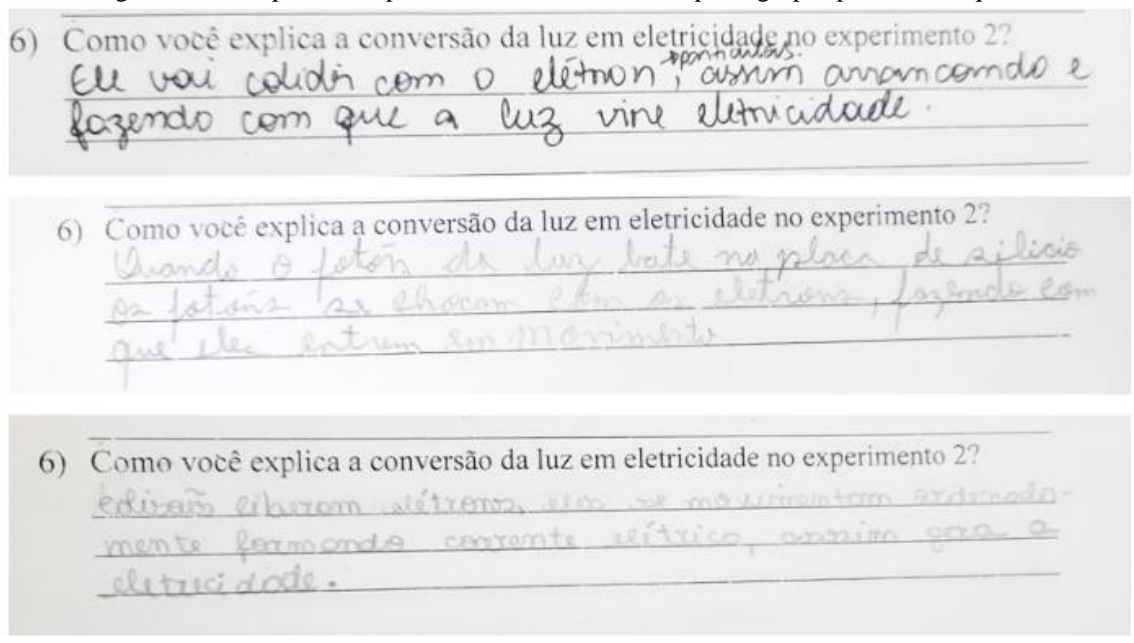 6) Como você explica a conversão da luz em eletricidade no experimento 2?
spontaneas.
Ele vai colidir com o elétron, assim arrancando e
fazendo com que a luz vire eletricidade.
6) Como você explica a conversão da luz em eletricidade no experimento 2?
Quando o fotón da luz bate na placa de silicio
os fotons se chocam com os eletrons, fazendo com
que eles entrem em movimento
6) Como você explica a conversão da luz em eletricidade no experimento 2?
liberam elétrons, eles se movimentam ordenada-
mente formando corrente elítrica, assim gera a
eletricidade.